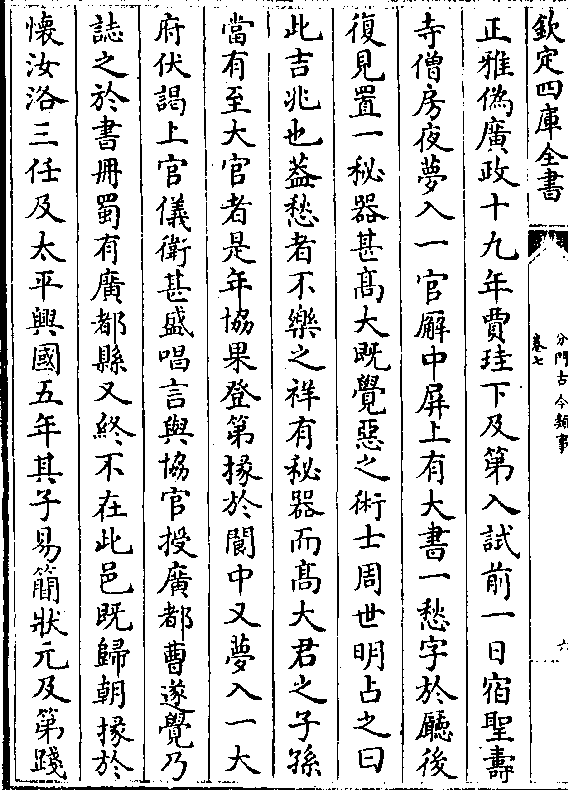 欽定四庫全書
分門古今類事
卷七
六
正雅偽廣政十九年賈珪下及第入試前一日宿聖壽
寺僧房夜夢入一官廨中屏上有大書一愁字於廳後
復見置一秘器甚髙大既覺惡之術士周世明占之曰
此吉兆也葢愁者不樂之祥有秘器而髙大君之子孫
當有至大官者是年協果登第掾於閬中又夢入一大
府伏謁上官儀衛甚盛唱言與協官授廣都曹遂覺乃
誌之於書冊蜀有廣都縣又終不在此邑既歸朝掾於
懷汝洛三任及太平興國五年其子易簡狀元及第踐